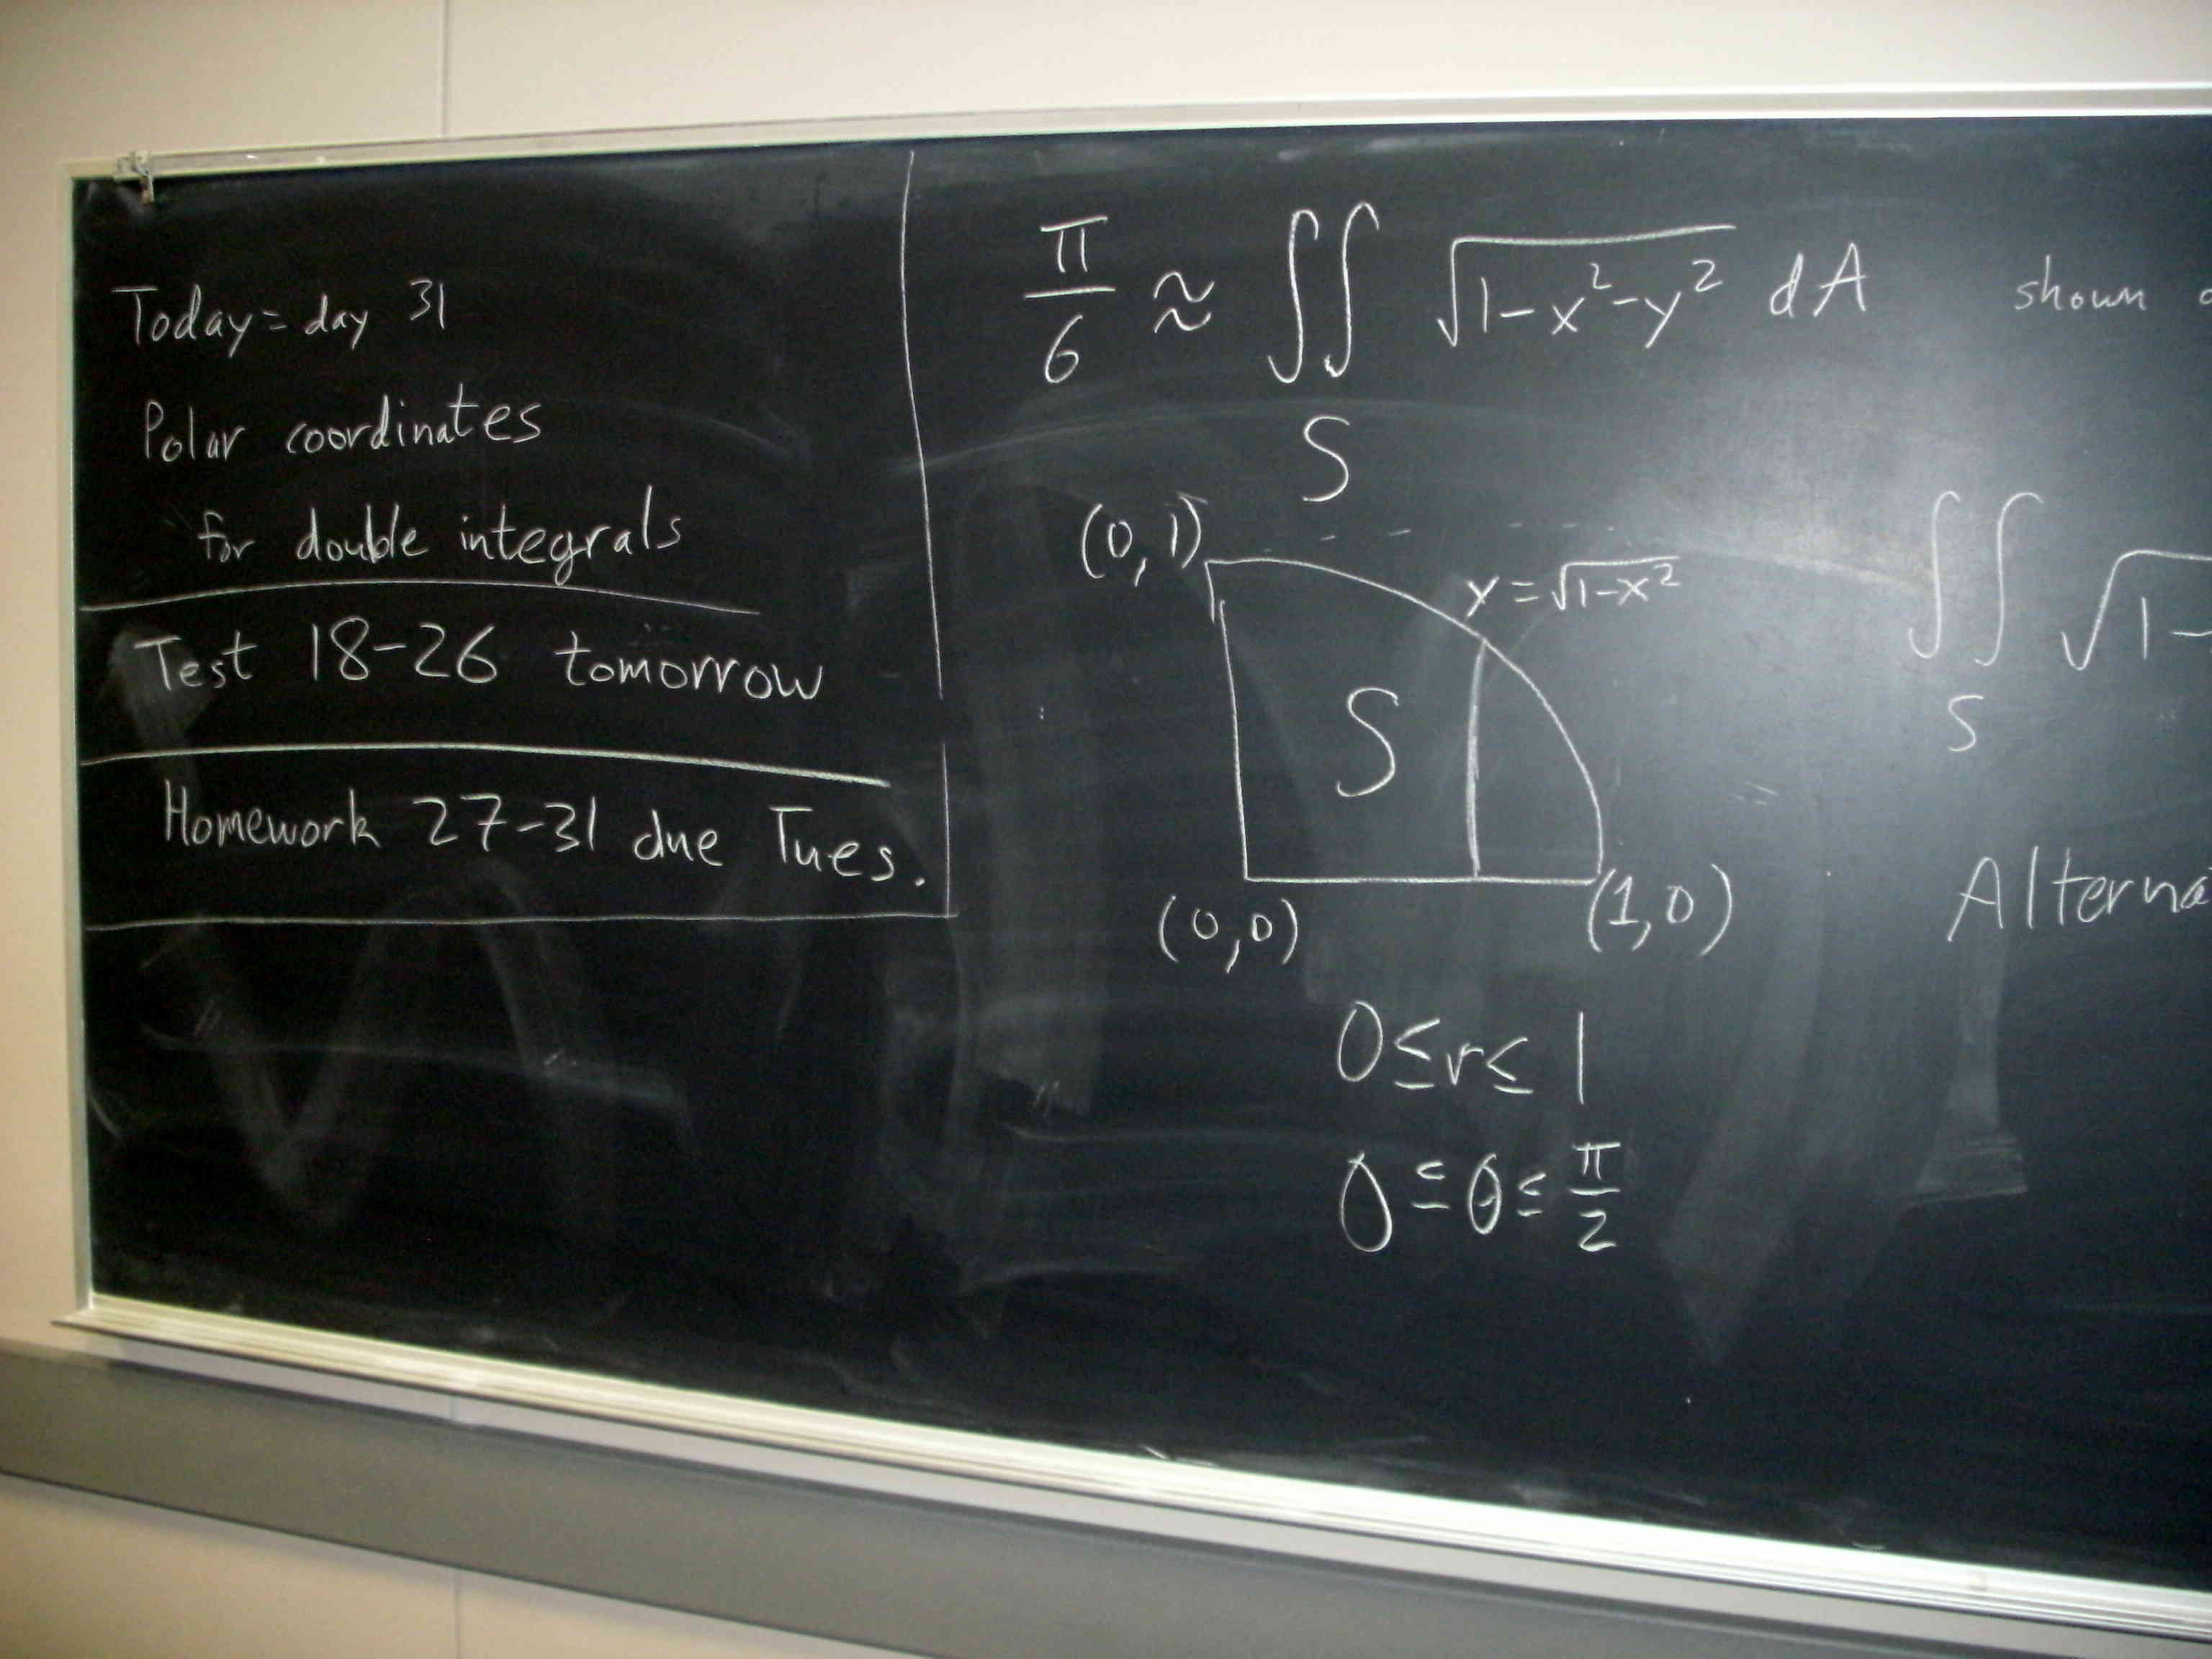 Today = day 31
Polar coordinates
for double integrals
Test 18-26 tomorrow
Homework 27-31 due Tues.
π/6 ≈ ∬ √(1-x²-y²) dA shown
S
(0,1)
y = √(1-x²)
S
(0,0) (1,0)
0 ≤ r ≤ 1
0 ≤ θ ≤ π/2
∬ √1-
S